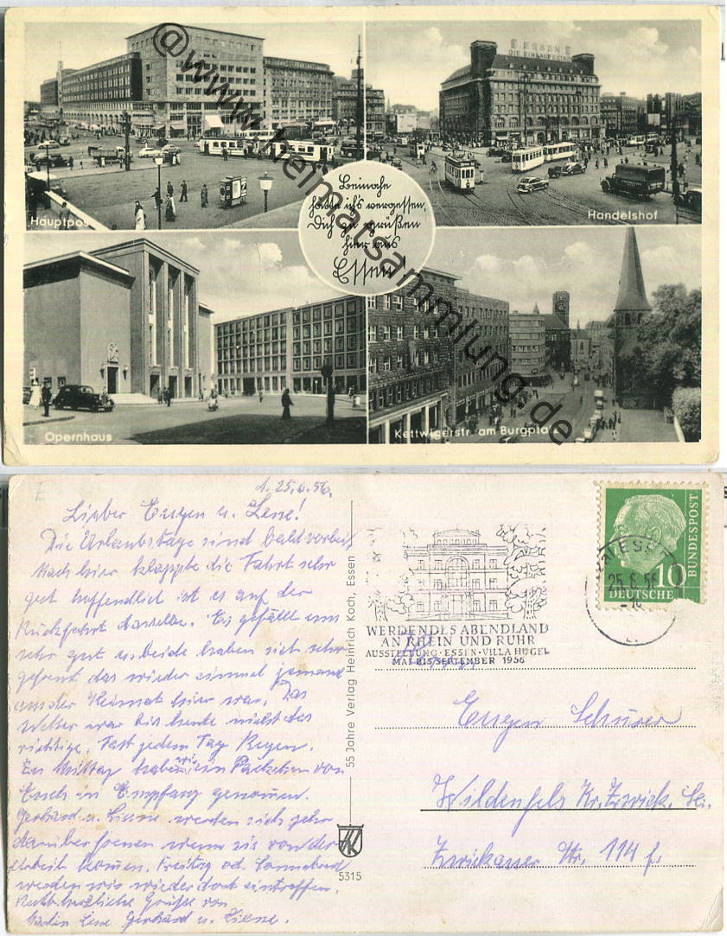 Hauptpost
EISBAN E
DIE EINKAUFSSTADT
Handelshof
Beinahe
hätte ich's vergessen,
Dich zu grüßen
hier aus
Essen!
Opernhaus
Kettwigerstr. am Burgplatz
@www.heimatsammlung.de
1. 25.6.56.
Lieber Eugen u. Lene!
Die Urlaubstage sind bald vorbei
Nach hier klappte die Fahrt sehr
gut hoffendlich ist es auf der
Rückfahrt dasselbe. Es gefällt uns
sehr gut u. beide haben sich sehr
gefreut das wieder einmal jemand
aus der Heimat hier war. Das
Wetter war bis heute nicht das
richtige, fast jeden Tag Regen.
Zu Mittag haben wir ein Päckchen von
in Empfang genommen.
Gerhard u. Liesne werden sich sehr
darüber freuen wenn sie von der
Arbeit kommen. Freitag od. Sonnabend
werden wir wieder dort eintreffen.
Recht herzliche Grüße von
Lene Gerhard u. Liesne.
55 Jahre Verlag Heinrich Koch, Essen
HK
5315
WERDENDES ABENDLAND
AN RHEIN UND RUHR
AUSSTELLUNG · ESSEN · VILLA HÜGEL
MAI BIS SEPTEMBER 1956
ESSEN
25.6.56
10
DEUTSCHE
BUNDESPOST
Eugen Schürer
Wildenfels Kr. Zwick. Sa.
Zwickauer Str. 114 f.